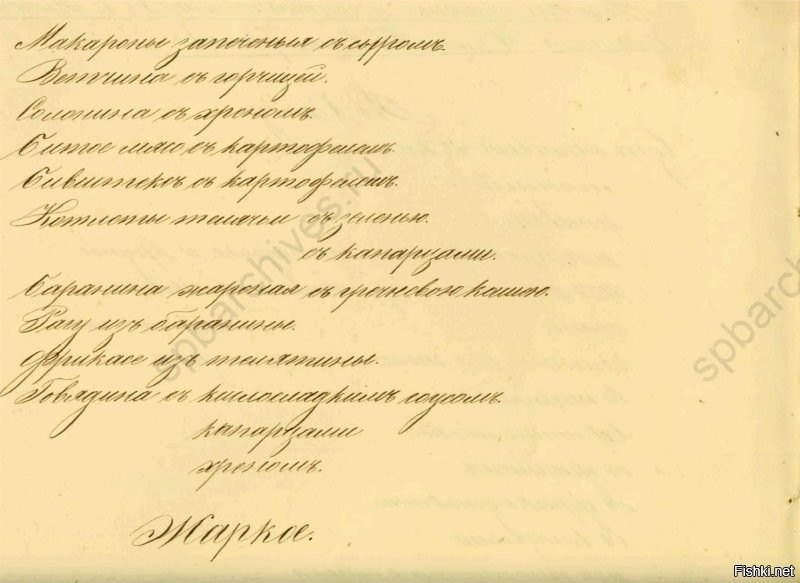 Макароны запеченыя съ сыромъ
Ветчина съ горчицей.
Солонина съ хреномъ.
Битое мясо съ картофелемъ
Бивштексъ съ картофелемъ.
Котлеты телячьи съ зеленью.
съ капарцами.
Баранина жареная съ гречневою кашею.
Рагу изъ баранины.
Фрикасе изъ телятины.
Говядина съ кислосладкимъ соусомъ
капарцами
хреномъ.
Жаркое.
spbarchives.ru
spbarch
Fishki.net